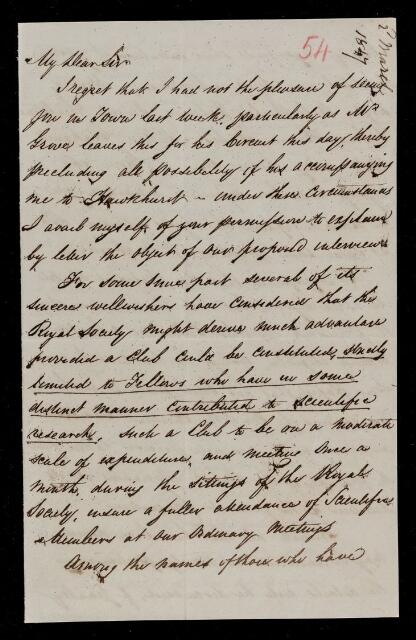 2 March
1847
54
My Dear Sir
I regret that I had not the pleasure of seeing
you in Town last week, particularly as Mr
Grove leaves this for his Circuit this day, thereby
precluding all possibility of his accompanying
me to Hawkhurst – under these Circumstances
I avail myself of your permission to explain
by letter the object of our proposed interview
For some time past several of its
sincere wellwishers have considered that the
Royal Society might derive much advantage
provided a Club could be constituted, strictly
limited to Fellows who have in some
distinct manner contributed to scientific
research, such a Club to be on a moderate
scale of expenditure, and meeting once a
month, during the sittings of the Royal
Society, insure a fuller attendance of Scientific
Members at our Ordinary Meetings
Among the names of those who have